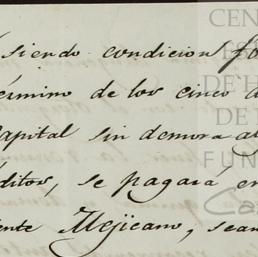 siendo condicion
término de los cinco
Capital sin demora
ditos, se pagará en
ente Mejicano, sean
CEN
E
DE H
DE
FUN
Ca